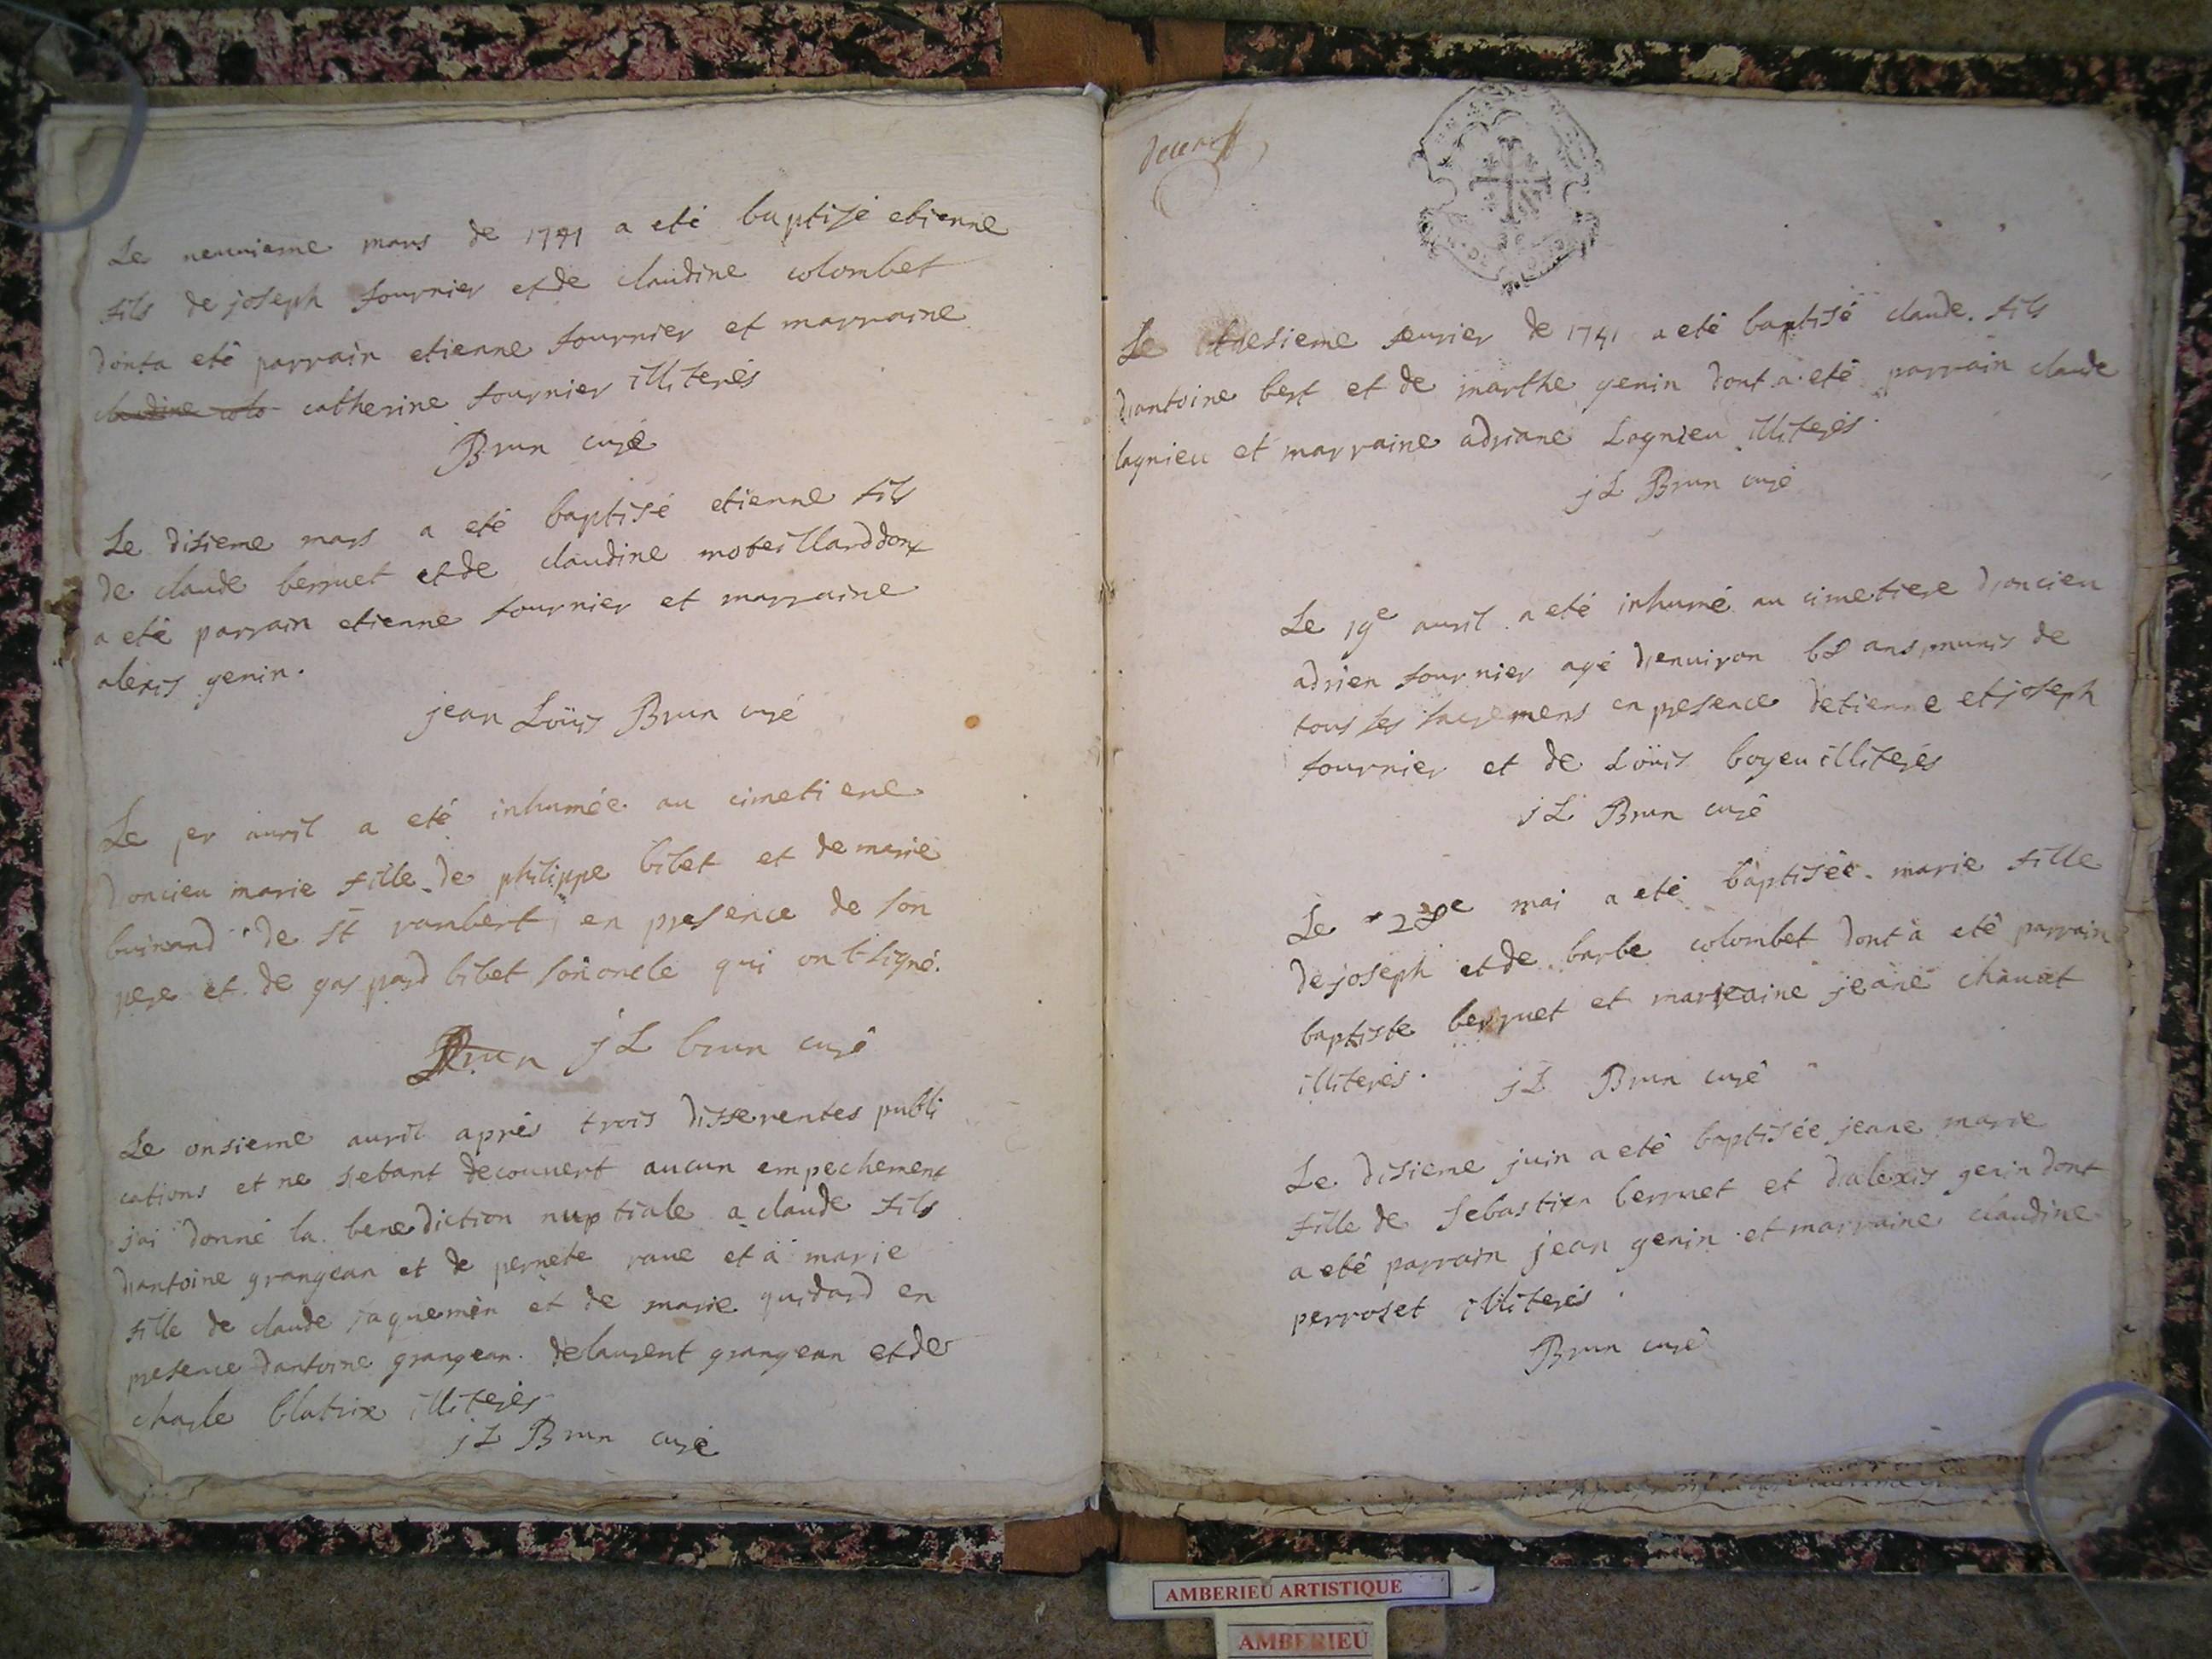 Le neuuieme mars de 1741 a eté baptisé etienne
fils de joseph fournier et de claudine colombet
dont a eté parrain etienne fournier et marraine
claudine colo catherine fournier illiterés
Brun curé
Le disieme mars a eté baptisé etienne fils
de claude berruet et de claudine moteillard dont
a eté parrain etienne fournier et marraine
alexis genin.
jean Loüis Brun curé
Le per auril a eté inhumée au cimetiere
doncieu marie fille de philippe bibet et de marie
buinand de st rambert, en presence de son
pere et de gaspard bibet son oncle qui ont signé.
Brun jL brun curé
Le onsieme auril aprés trois differentes publi
cations et ne setant decouuert aucun empechement
jai donné la benediction nuptiale a claude fils
d'antoine grangean et de pernete raue et à marie
fille de claude jaquemin et de marie guidard en
presence dantoine grangean. de laurent grangean et de
charle blatrix illiterés
jL Brun curé
Le tresieme feurier de 1741 a eté baptisé claude. fils
d'antoine bert et de marthe genin dont a eté parrain claude
lagnieu et marraine adriane Lagnieu illiterés.
jL Brun curé
Le 19e auril a eté inhumé au cimetiere d'oncieu
adrien fournier agé d'enuiron 68 ans, munis de
tous les sacremens en presence detienne et joseph
fournier et de Loüis boyeu illiterés
jL Brun curé
Le 28e mai a eté baptisée marie fille
de joseph et de barbe colombet dont a eté parrain
baptiste berruet et marraine jeane chauet
illiterés. jL Brun curé
Le disieme juin a eté baptisée jeane marie
fille de Sebastien berruet et d'alexis genin dont
a eté parrain jean genin et marraine claudine
perroset illiterés.
Brun curé
AMBERIEU ARTISTIQUE
AMBERIEU